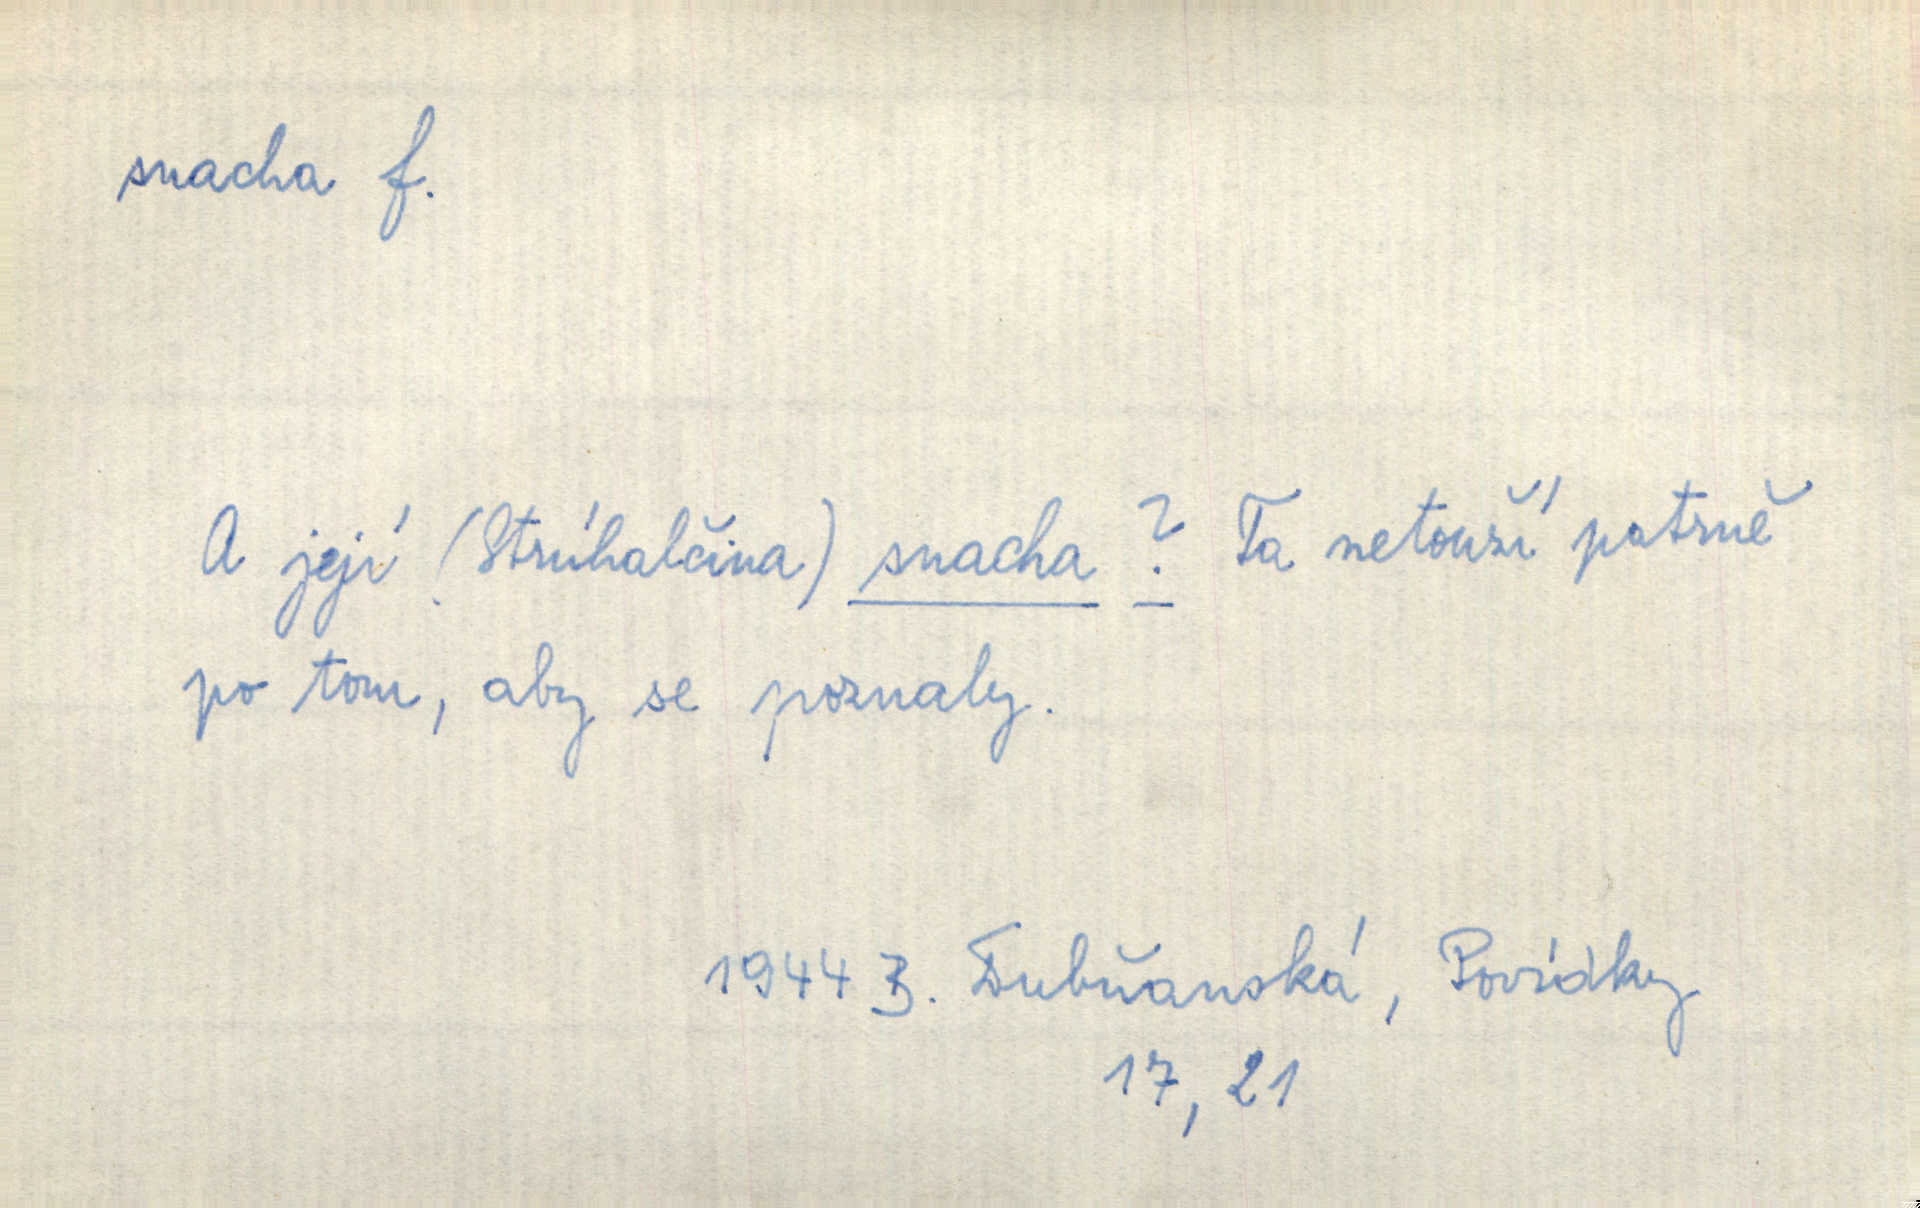 snacha f.
A její (Strúhalčina) snacha ? Ta netouží patrně
po tom, aby se poznaly.
1944 B. Dubňanská, Povídky
17, 21